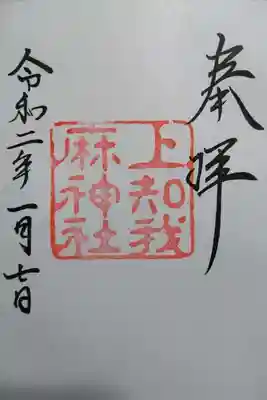 奉拝
上知我
麻神社
令和二年一月七日